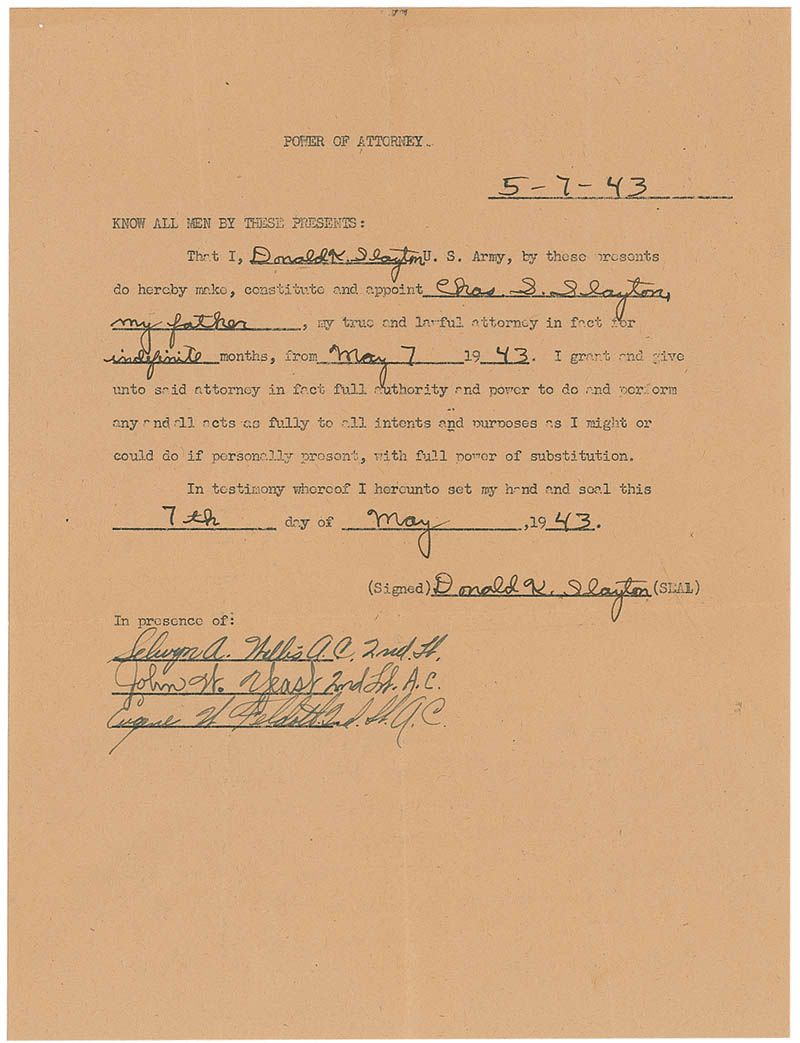 POWER OF ATTORNEY.
5-7-43
KNOW ALL MEN BY THESE PRESENTS:
That I, Donald K. Slayton U. S. Army, by these presents
do hereby make, constitute and appoint Chas. S. Slayton,
my father, my true and lawful attorney in fact for
indefinite months, from May 7 1943. I grant and give
unto said attorney in fact full authority and power to do and perform
any and all acts as fully to all intents and purposes as I might or
could do if personally present, with full power of substitution.
In testimony whereof I hereunto set my hand and seal this
7th day of May, 1943.
(Signed) Donald K. Slayton (SEAL)
In presence of:
Selwyn A. Willis A.C. 2nd. Lt.
John W. Yeast 2nd Lt. A.C.
Eugene W. 2nd. Lt. A.C.